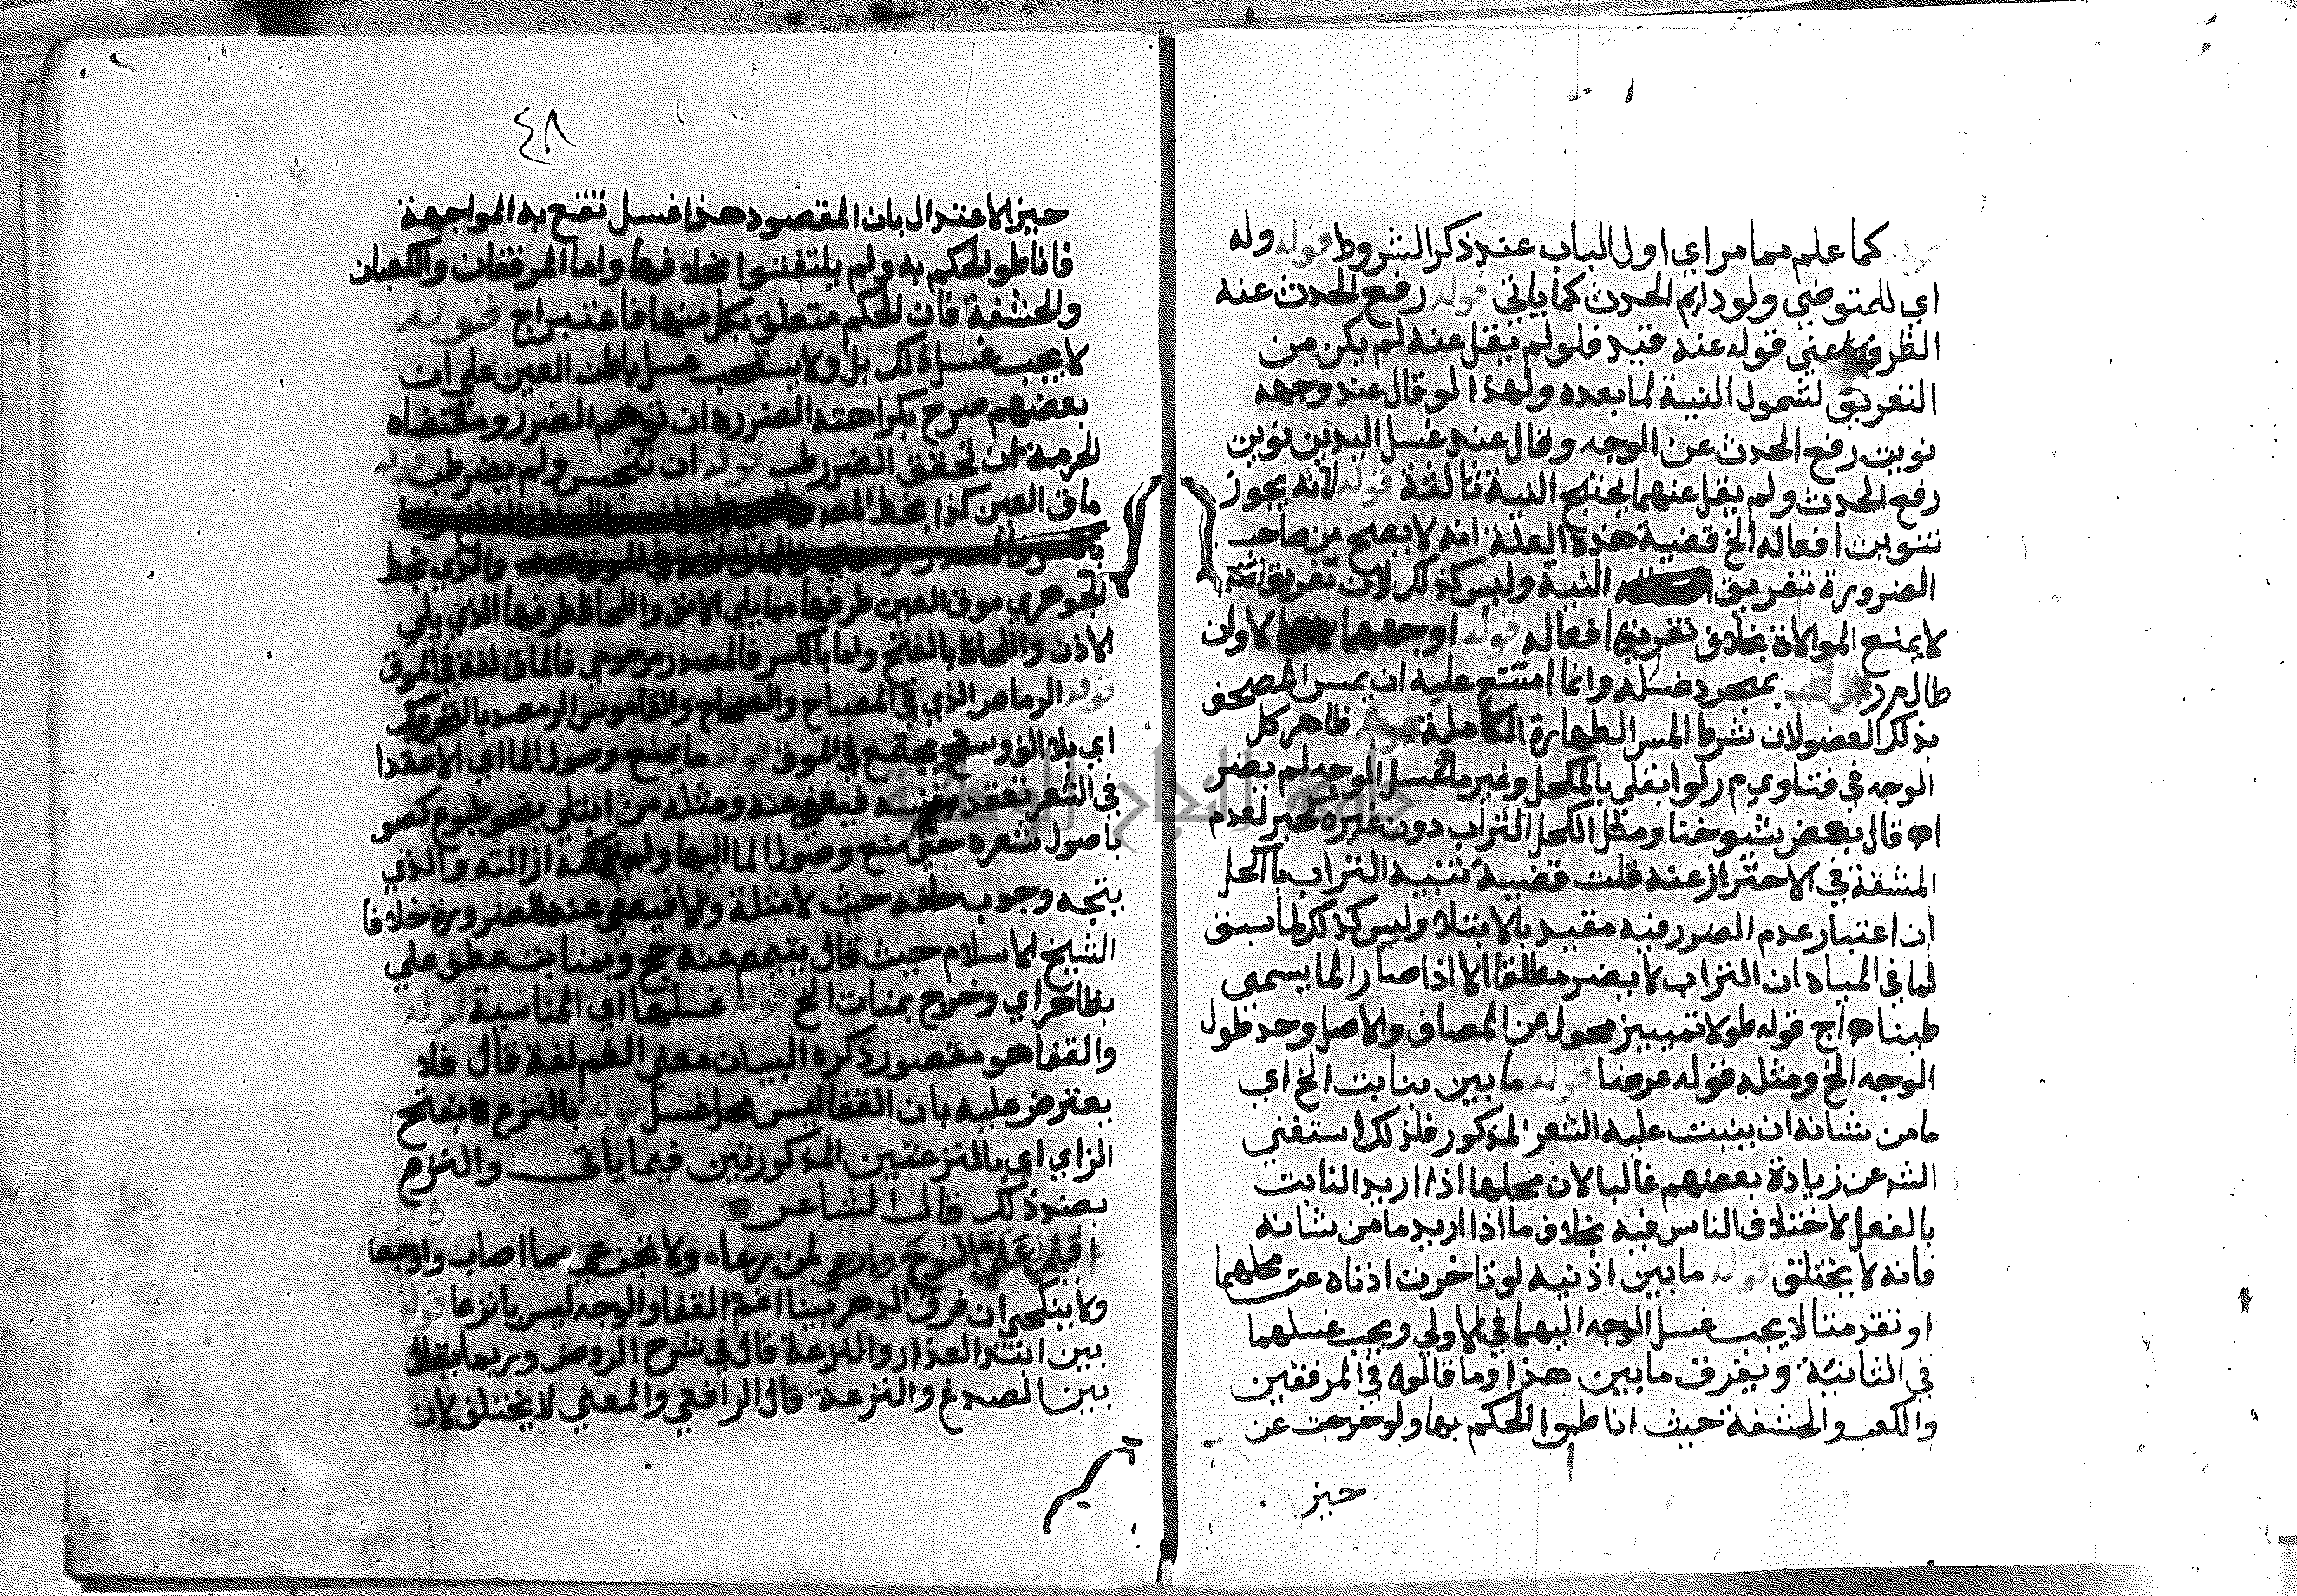 قوله كما علم مما مر اي اول الباب عند ذكر الشروط قوله وله
اي للمتوضي ولو دايم الحدث كما ياتي قوله رفع الحدث عنه
الظرف يعني قوله عنه قيد فلو لم يقل عنه لم يكن من
التفريق لشمول النية لما بعده ولهذا لو قال عند وجهه
نويت رفع الحدث عن الوجه وقال عند غسل اليدين نويت
رفع الحدث ولم يقل عنهما لم يحتج النية ثالثة قوله لانه يجوز
تنويت افعاله الخ قضية هذه العلة انه لا يصح من صاحب
الضرورة تفريق النية وليس كذلك لان تفريق النية
لا يمنع الموالاة بخلاف تفريق افعاله قوله اوجههما الاول
طال م ر بمجرد غسله وانما امتنع عليه ان يمس المصحف
بذلك العضو لان شرط المس الطهارة الكاملة قوله ظاهر كل
الوجه في فتاوي م ر لو ابتلي بالمكحل وغير ماء غسل الوجه لم يضر
اه قال بعض شيوخنا ومثل الكحل التراب دون غيره كحبر لعدم
المشقة في الاحتراز عنه قلت قضية تشبيه التراب بالكحل
ان اعتبار عدم الضرر فيه مقيد بالابتلاء وليس كذلك لما سبق
لما في المياه ان التراب لا يضر مطلقا الا اذا صار الما يسمى
طينا اه اج قوله طولا تمييز محول عن المضاف والاصل وحد طول
الوجه الخ ومثله قوله عرضا قوله ما بين منابت الخ اي
ما من شانه ان ينبت عليه الشعر المذكور فلذلك استغني
الش عن زيادة بعضهم غالبا لان محلها اذا اريد النابت
بالفعل لاختلاف الناس فيه بخلاف ما اذا اريد ما من شانه
فانه لا يختلف قوله ما بين اذنيه لو تاخرت اذناه عن محلهما
او تقدمتا لا يجب غسل الوجه اليهما في الاولي ويجب غسلهما
في الثانية ويفرق ما بين هذا وما قالوه في المرفقين
والكعب والحشفة حيث اناطوا الحكم بها ولو خرجت عن
حيز
٤٨
حيز الاعتدال بان المقصود هنا غسل تقع به المواجهة
فاناطوا الحكم به ولم يلتفتوا بخلاف فيها واما المرفقان والكعبان
والحشفة فان الحكم متعلق بكل منها فاعتبر اج قوله
لا يجب غسل ذلك بل ولا يستحب غسل باطن العين علي ان
بعضهم صرح بكراهته لضرره ان توهم الضرر ومقتضاه
الحرمة ان تحقق الضرر طب قوله ان تنجس ولم يضر طب قوله
ماق العين كذا بخط المص
والذي بخط
الجوهري موق العين طرفها مما يلي الانف واللحاظ طرفها الذي يلي
الاذن واللحاظ بالفتح واما بالكسر فالمصدر مرحومي فالماق لغة في الموق
قوله الرماص الذي في المصباح والصحاح والقاموس الرمص بالتحريك
اي بلا الف وسخ يجتمع في الموق قوله ما يمنع وصول الما اي الاعقدا
في الشعر تعقد بنفسه فيعفى عنه ومثله من ابتلي بنحو طبوع كصو
باصول شعره حتى منع وصول الما اليها ولم يمكنه ازالته والذي
يتجه وجوب حلقه حيث لا مثلة والا فيعفي عنه للضرورة خلافا
الشيخ الاسلام حيث قال يتيمم عنه حج وبمنابت عطف علي
بظاهر اي وخرج بمنابت الخ قوله غسلها اي المناسبة قوله
والقفا هو مقصور ذكره لبيان معني الغم لغة قال فلا
يعترض عليه بان القفا ليس محل غسل قوله بالنزع بفتح
الزاي اي بالنزعتين المذكورتين فيما ياتي والنزع
بضد ذلك قال الشاعر
اقلي علي النوح وارعي لمن رعاه ولا تجزعي مما اصاب واوجعا
ولا تنكحي ان فرق الدهر بيننا اغم القفا والوجه ليس بانزعا قوله
بين ابتدا العذار والنزعة قال في شرح الروض وربما يقال
بين الصدغ والنزعة قال الرافعي والمعني لا يختلف لان